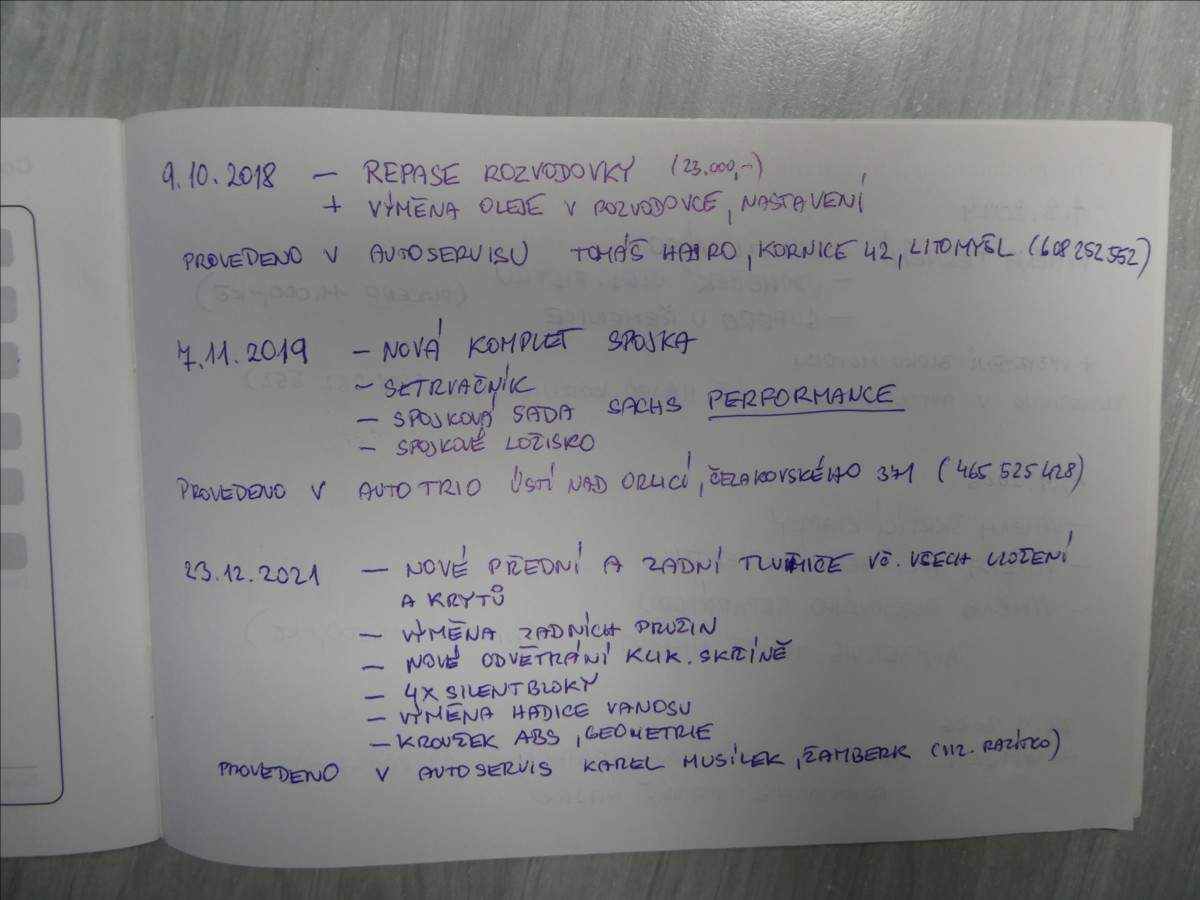 9.10.2018 – REPASE ROZVODOVKY (23.000,-)
+ VÝMĚNA OLEJE V ROZVODOVCE, NASTAVENÍ
PROVEDENO V AUTOSERVISU TOMÁŠ HAJRO, KORNICE 42, LITOMYŠL (608252552)
7.11.2019 – NOVÁ KOMPLET SPOJKA
– SETRVAČNÍK
– SPOJKOVÁ SADA SACHS PERFORMANCE
– SPOJKOVÉ LOŽISKO
PROVEDENO V AUTO TRIO ÚSTÍ NAD ORLICÍ, ČELAKOVSKÉHO 371 (465 525 428)
23.12.2021 – NOVÉ PŘEDNÍ A ZADNÍ TLUMIČE VČ. VŠECH ULOŽENÍ
A KRYTŮ
– VÝMĚNA ZADNÍCH PRUŽIN
– NOVÉ ODVĚTRÁNÍ KLIK. SKŘÍNĚ
– 4X SILENTBLOKY
– VÝMĚNA HADICE VANOSU
– KROUŽEK ABS, GEOMETRIE
PROVEDENO V AUTOSERVIS KAREL MUSÍLEK, ŽAMBERK (VIZ. RAZÍTKO)